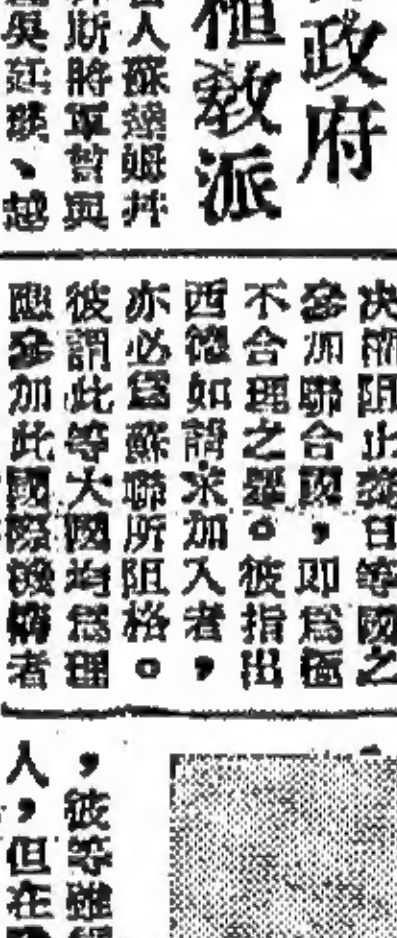 政府
植教派
人蘇達姆井
斯將軍暫與
吳廷琰、越
決捐阻止德日等國之
參加聯合國，即爲極
不合理之舉。彼指出
西德如請求加入者，
亦必爲蘇聯所阻格。
彼謂此等大國均爲理
應參加此國際機構者
，彼等雖
人，但在